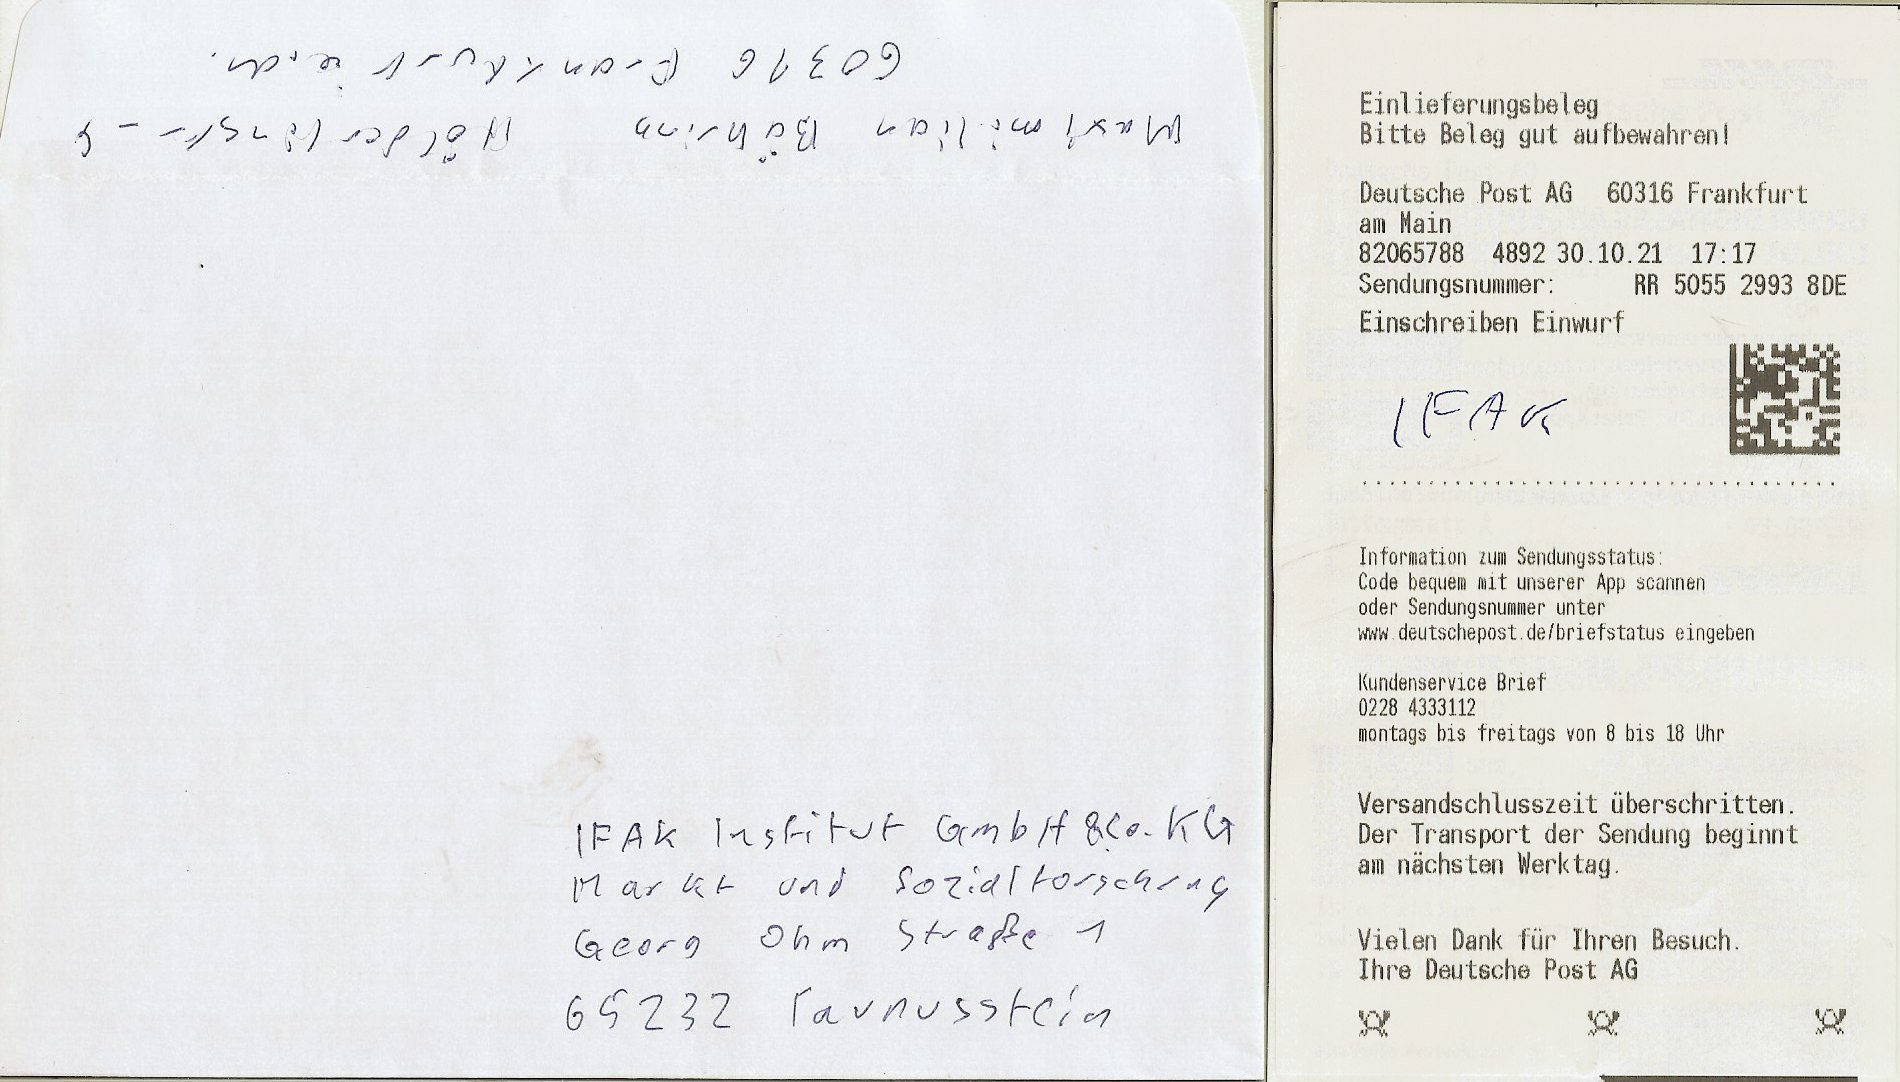 60316 Frankfurt a. M.
Maximilian Bähring Hölderlinstr. 4
IFAK Institut GmbH & Co. KG
Markt und Sozialforschung
Georg Ohm Straße 1
65232 Taunusstein
Einlieferungsbeleg
Bitte Beleg gut aufbewahren!
Deutsche Post AG 60316 Frankfurt
am Main
82065788 4892 30.10.21 17:17
Sendungsnummer: RR 5055 2993 8DE
Einschreiben Einwurf
IFAK
Information zum Sendungsstatus:
Code bequem mit unserer App scannen
oder Sendungsnummer unter
www.deutschepost.de/briefstatus eingeben
Kundenservice Brief
0228 4333112
montags bis freitags von 8 bis 18 Uhr
Versandschlusszeit überschritten.
Der Transport der Sendung beginnt
am nächsten Werktag.
Vielen Dank für Ihren Besuch.
Ihre Deutsche Post AG